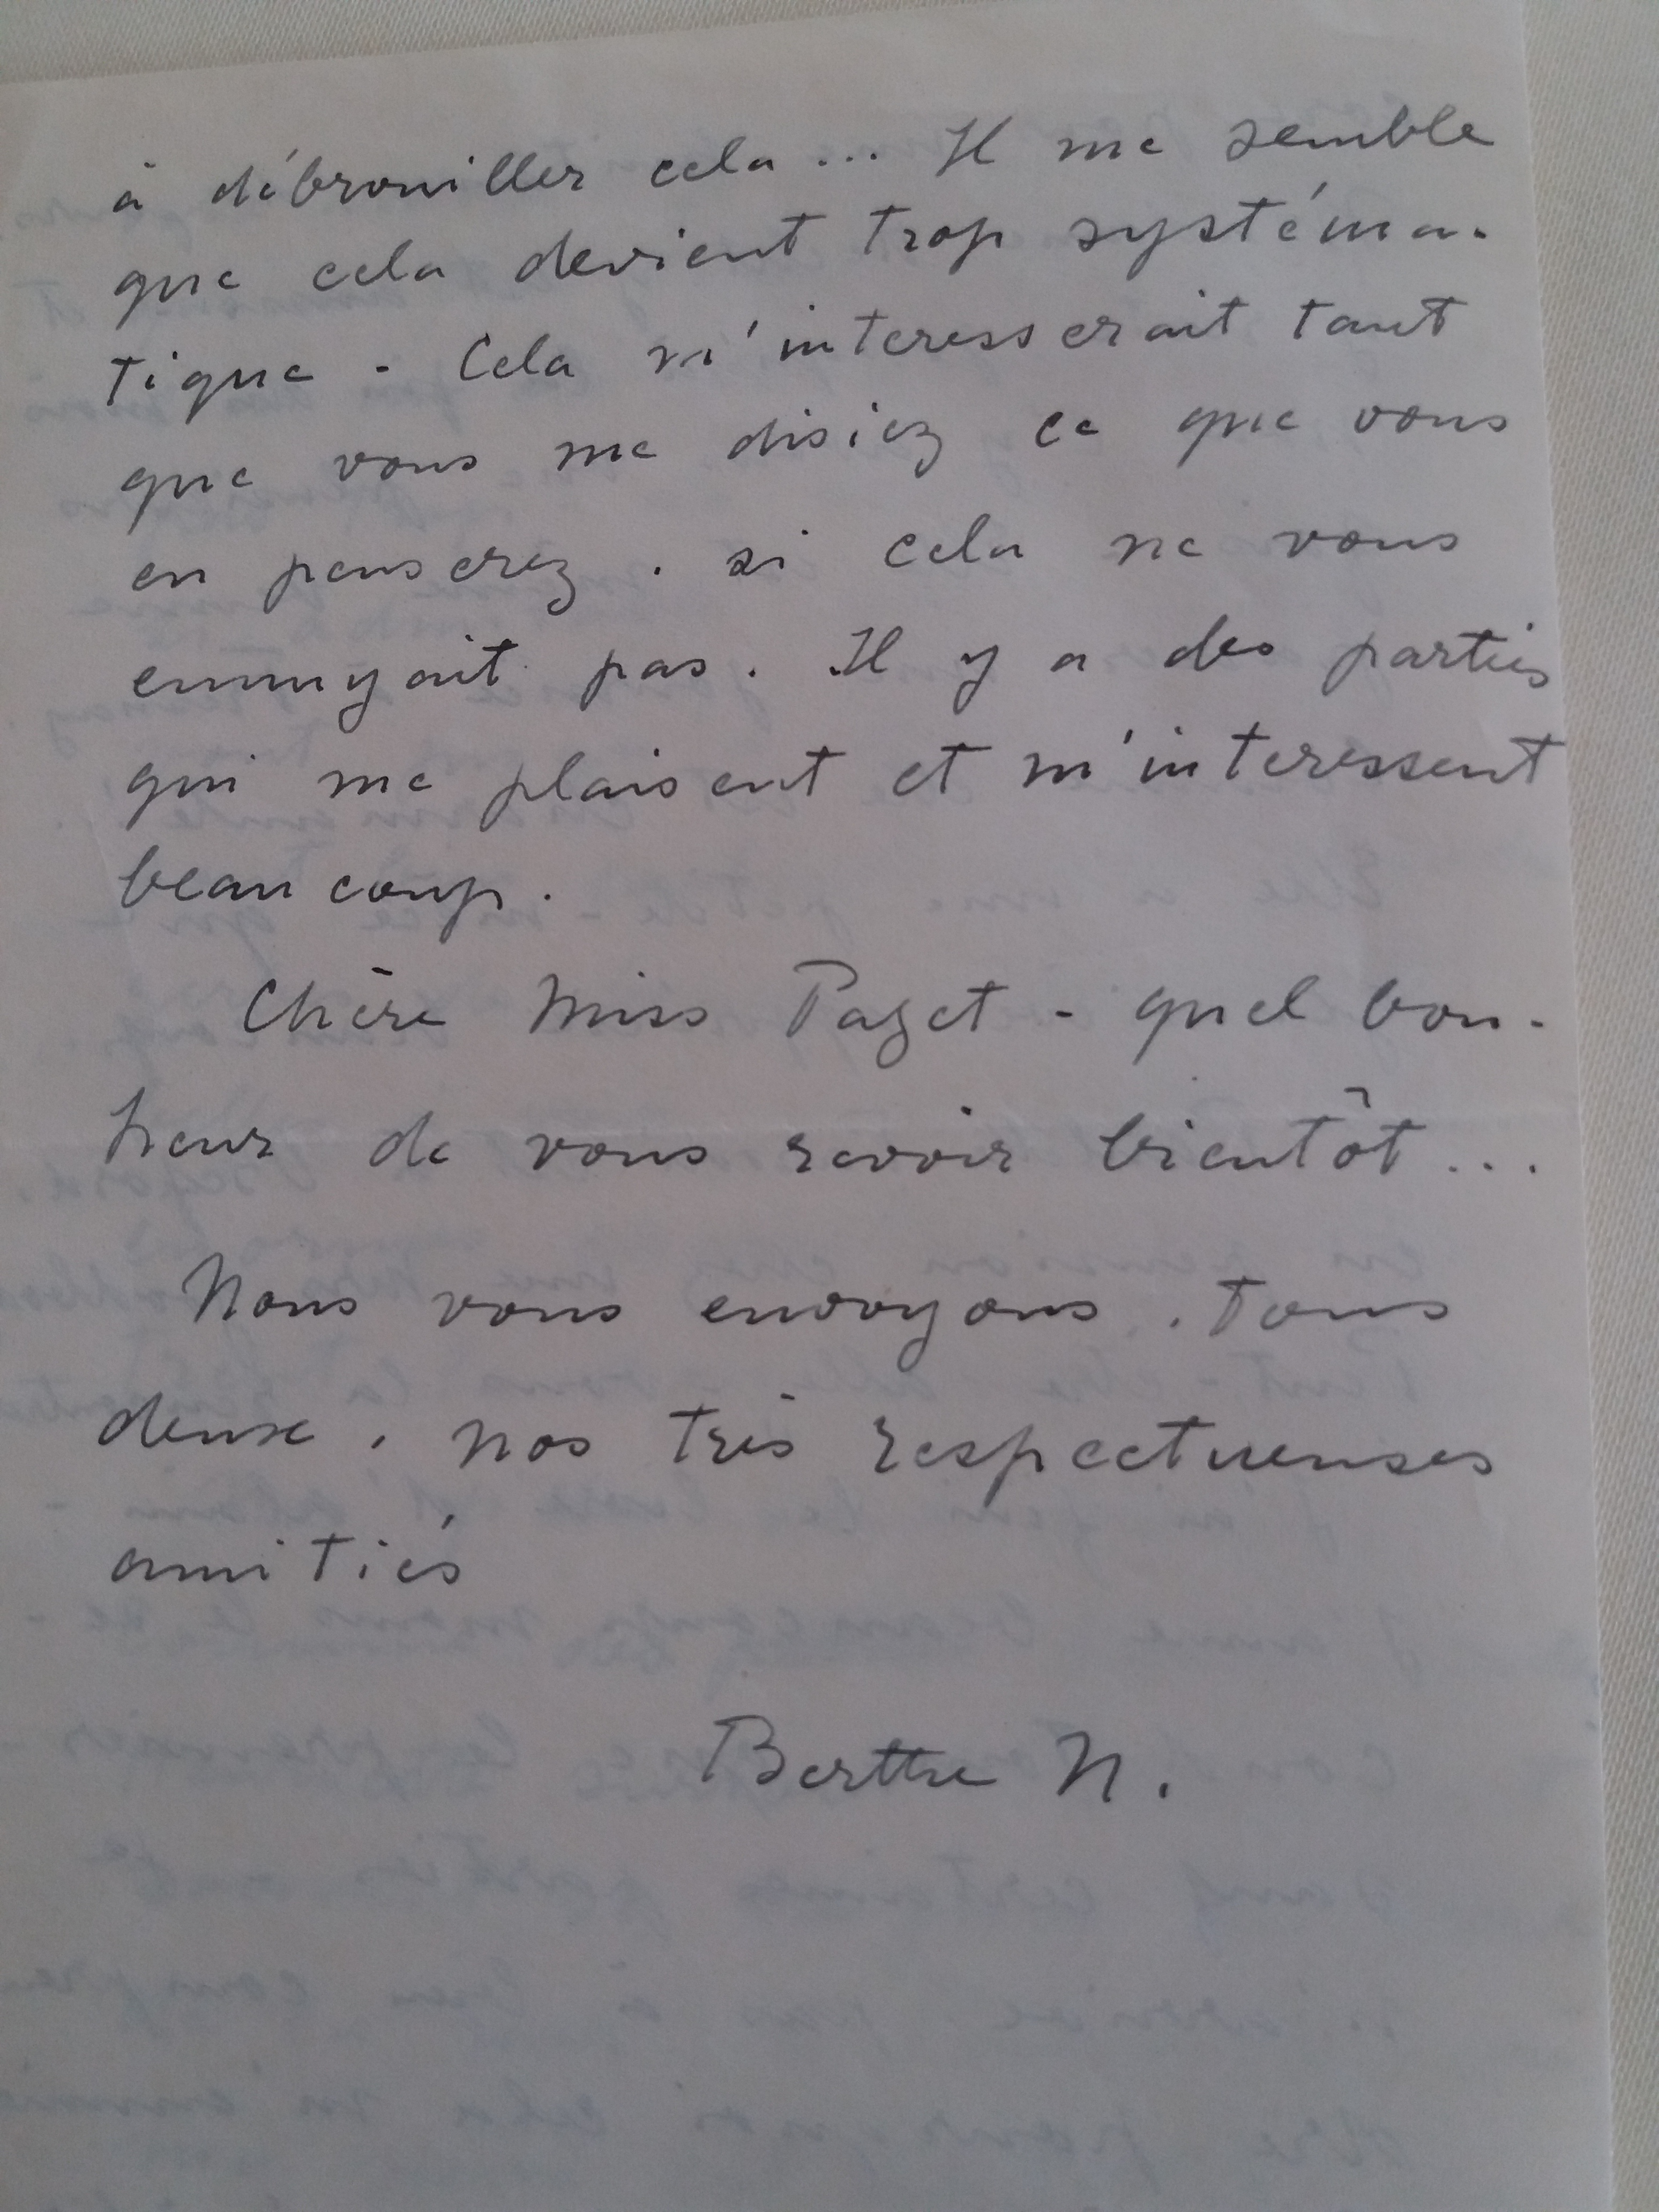 à débrouiller cela ... Il me semble
que cela devient trop systéma-
tique - Cela m'interesserait tant
que vous me disiez ce que vous
en penserez . si cela ne vous
ennuyait pas . Il y a des parties
qui me plaisent et m'interessent
beaucoup .
Chère Miss Paget - quel bon-
heur de vous revoir bientôt ...
Nous vous envoyons , tous
deux , nos très respectueuses
amitiés
Berthe N .